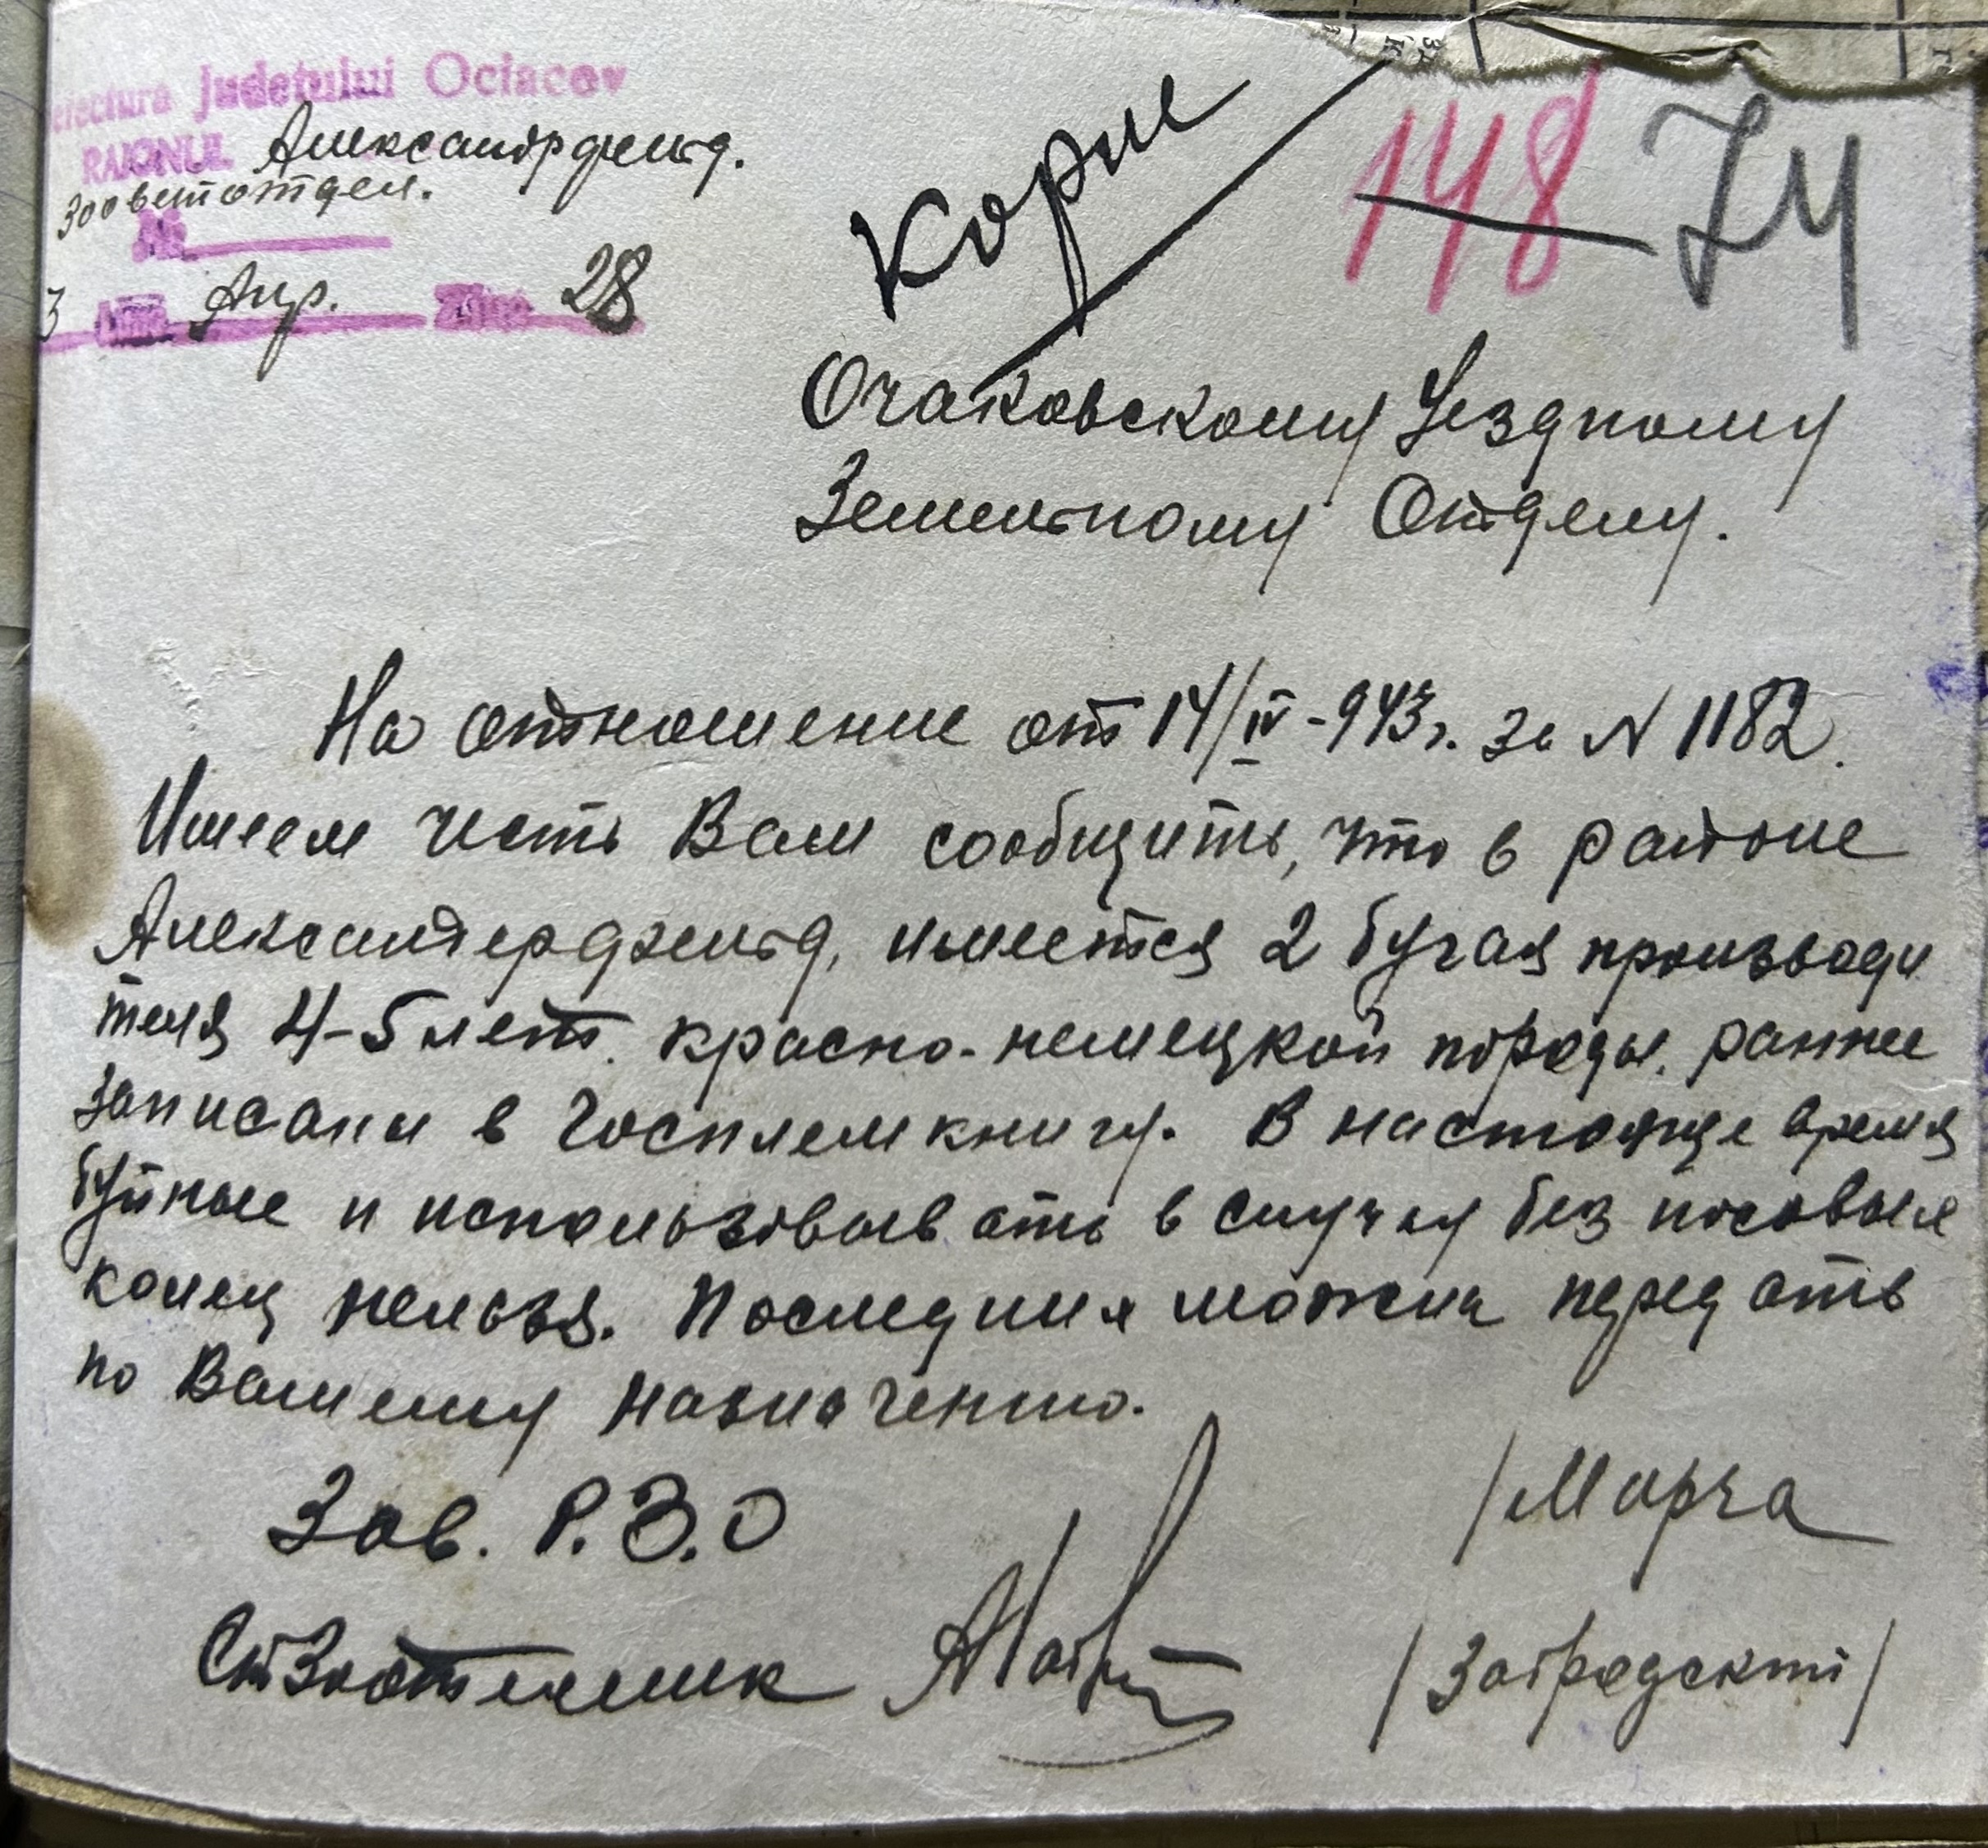 Prefectura Județului Ociacov
RAIONUL Александрфельд.
Зооветотдел.
№
3 Апр. Ziua 28
Корне
148 74
Очаковскому Уездному
Земельному Отделу.
На отношение от 14/IV-943г. за N 1182.
Имеем честь Вам сообщить, что в районе
Александерфельд, имеется 2 бугая производи
теля 4-5 лет. красно-немецкой породы, раннее
записаны в Госплемкнигу. В настояще время
буйные и использовывать в случку без носовых
колец нельзя. Последних можна передать
по Вашему назначению.
Зав. Р.З.О
/Марча
Ст Зоотехник
/Заградский/